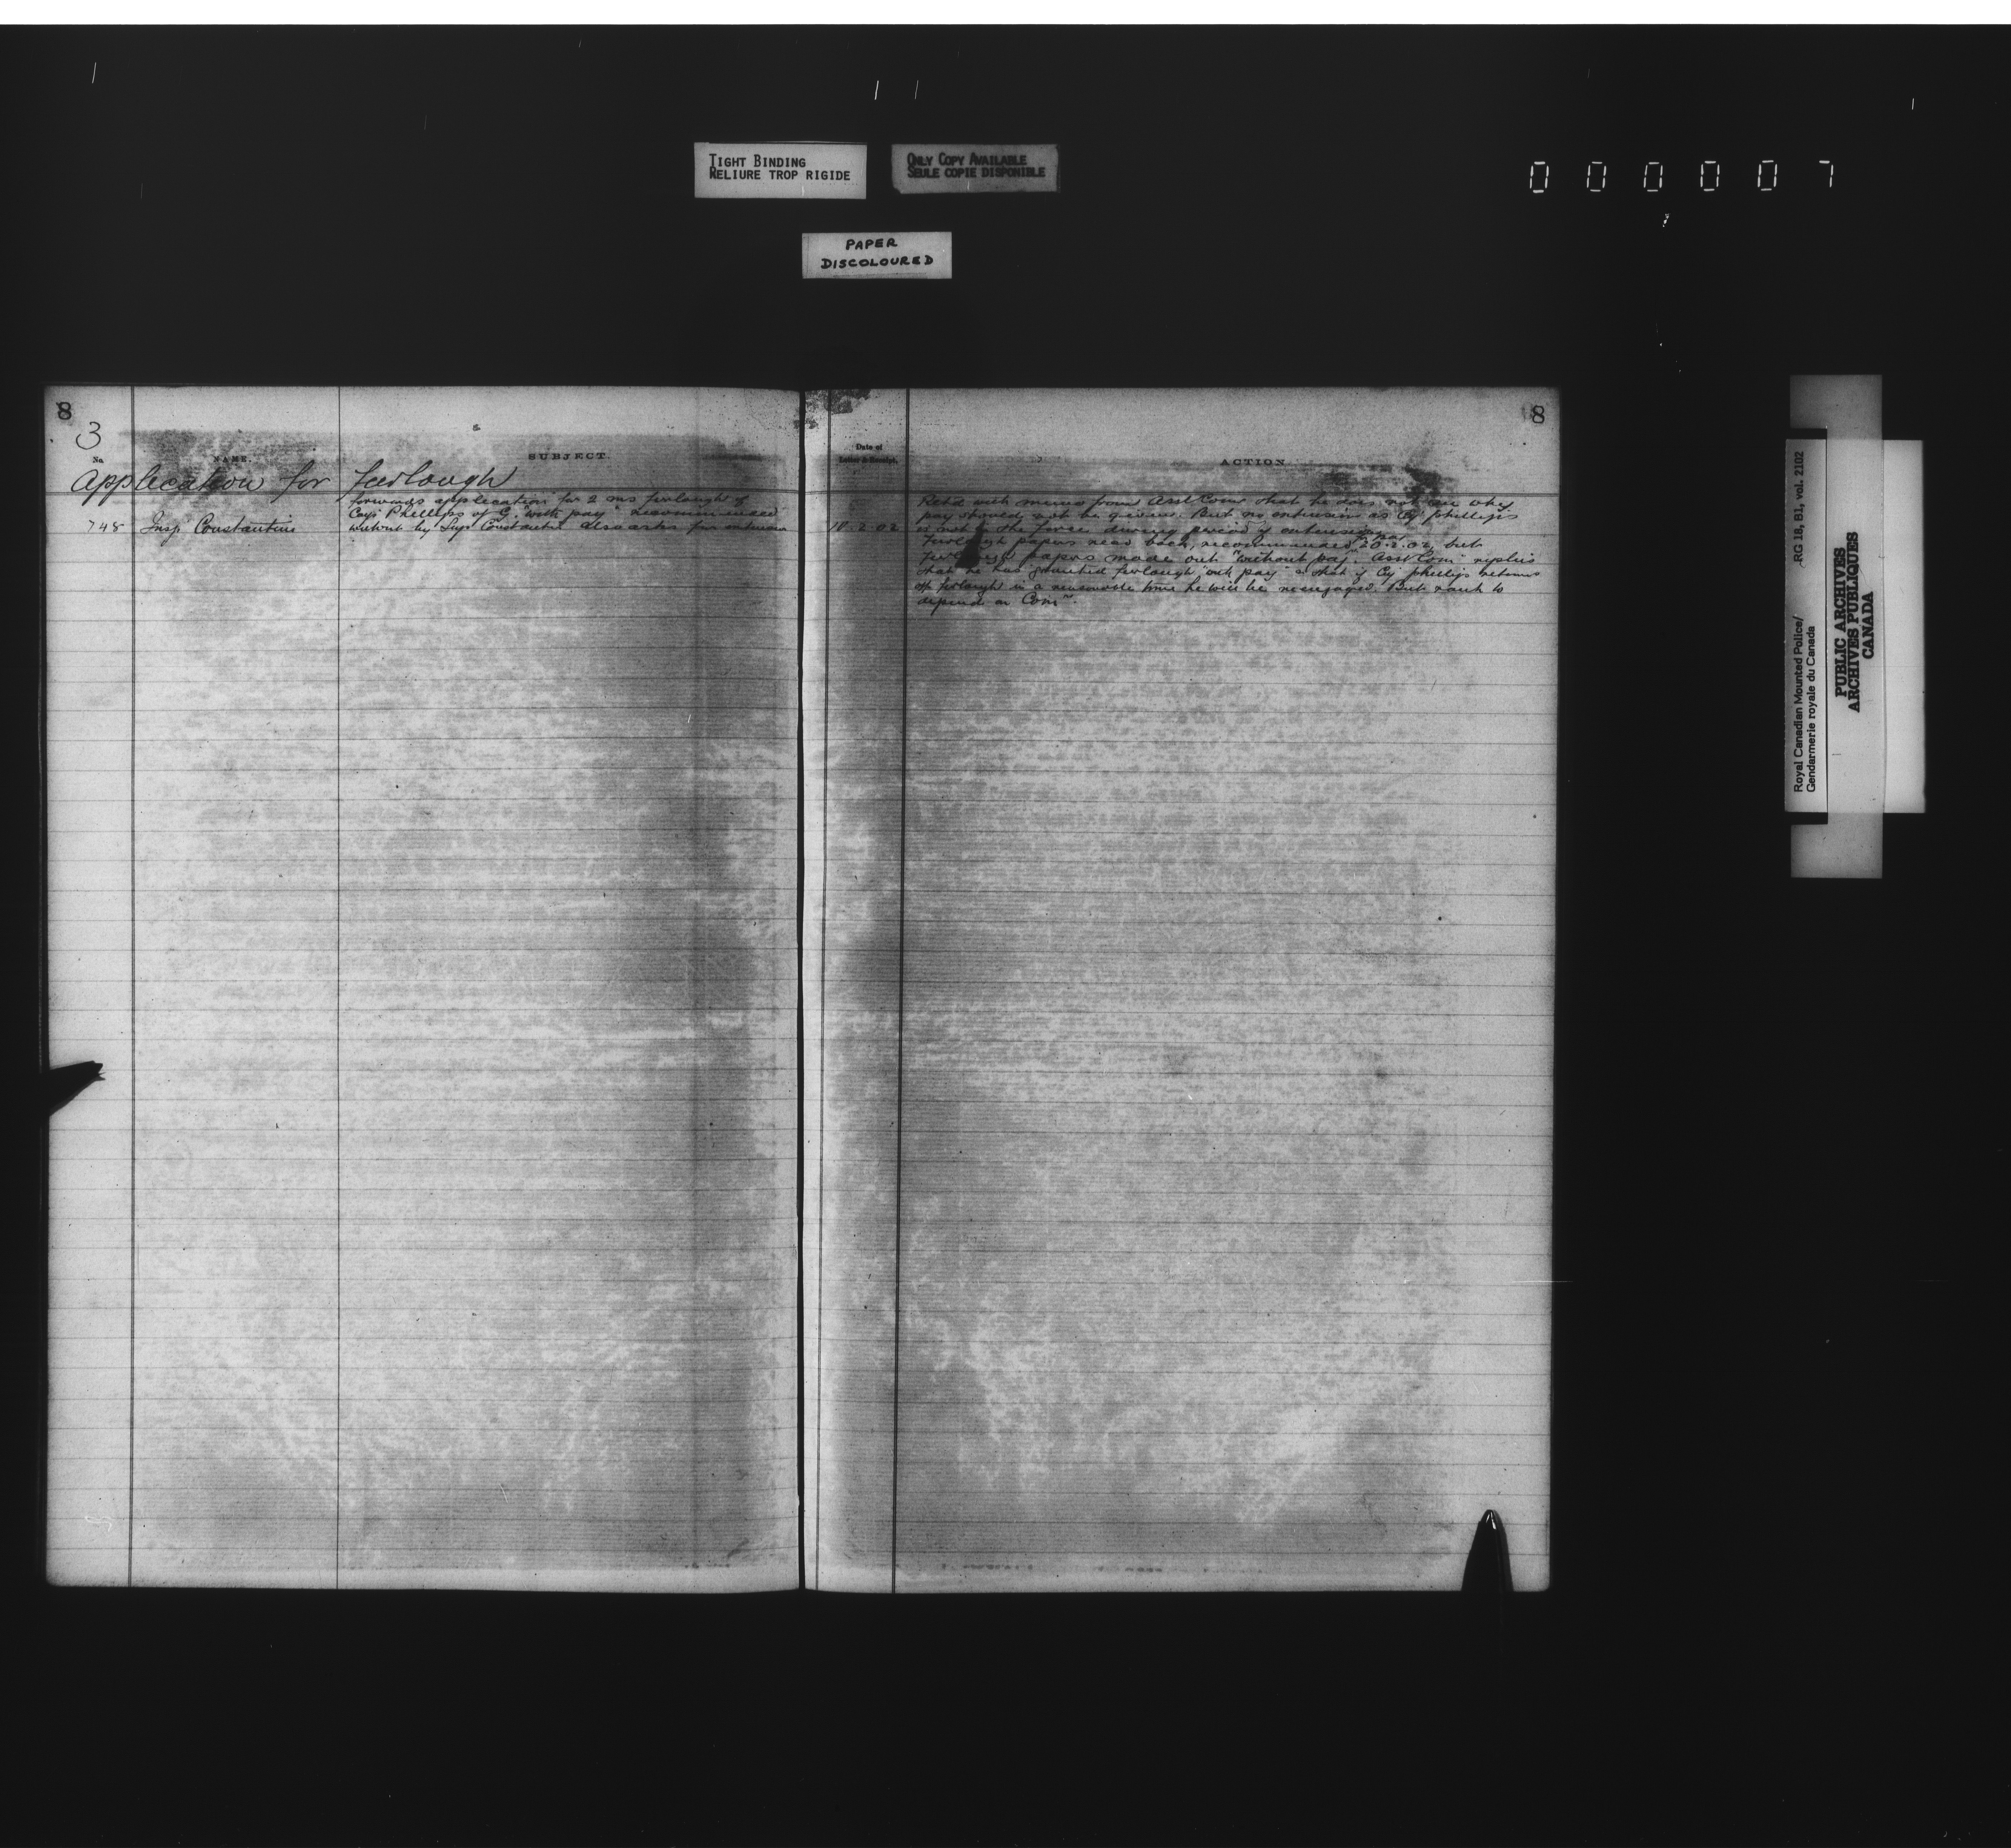 TIGHT BINDING
RELIURE TROP RIGIDE
ONLY COPY AVAILABLE
SEULE COPIE DISPONIBLE
PAPER
DISCOLOURED
000007
8
3
No.
NAME.
SUBJECT.
Application for furlough
forwards application for 2 ms furlough of
Corpl Phillips of G. "with pay" recommended
748 Insp Constantine without by Sup Constantine
8
Date of
Letter & Receipt.
ACTION
10.2.02
Retd with memo from Asst Comr that he does not see why
pay should not be given. But no extension as Cpl phillips
is not in the force during period of extension
Furlough papers recd back, recommended 20.2.02, but
furlough papers made out "without pay". Asst Com replies
that he has granted furlough out pay & that if Cpl phillips returns
off furlough in a reasonable time he will be reengaged. But rank to
depend on Comr.
Royal Canadian Mounted Police/
Gendarmerie royale du Canada
RG 18, B1, vol. 2102
PUBLIC ARCHIVES
ARCHIVES PUBLIQUES
CANADA